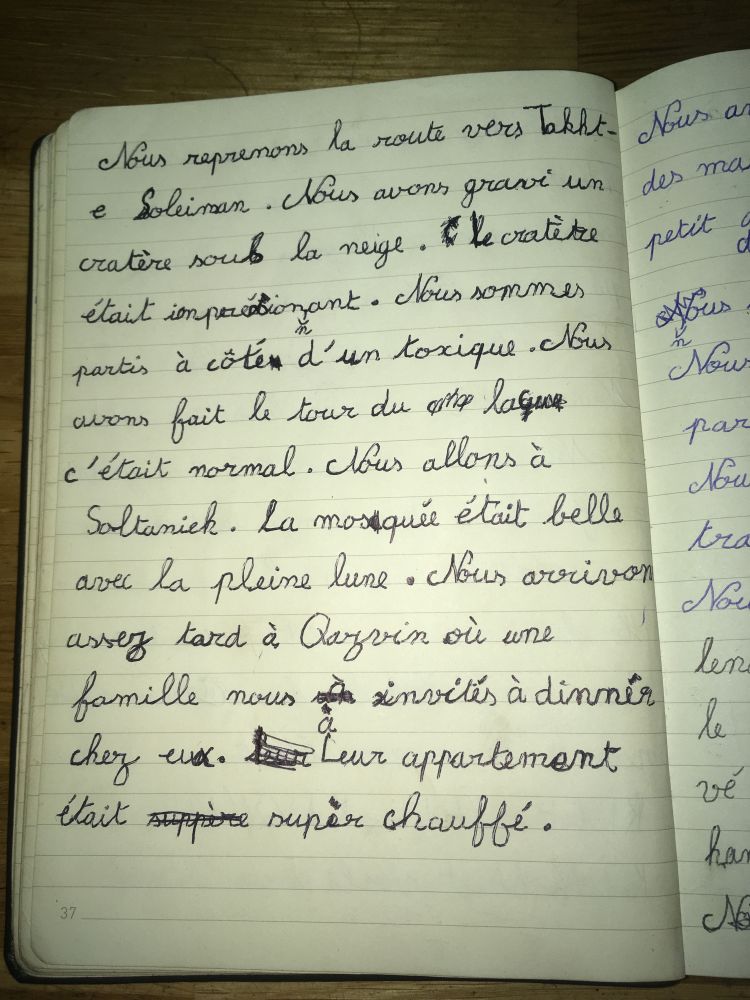 Nous reprenons la route vers Takht-
e Soleiman. Nous avons gravi un
cratère sous la neige. Le cratère
était impréssionant. Nous sommes
n
partis à côté d'un toxique. Nous
avons fait le tour du lac
c'était normal. Nous allons à
Soltanieh. La mosquée était belle
avec la pleine lune. Nous arrivon
assez tard à Qazvin où une
famille nous invités à dinnér
à
chez eux. Leur appartement
était suppère supèr chauffé.
37
Nous
des ma
petit
Nous
n
Nous
par
Nous
tra
Nou
len
le
vé
han
No